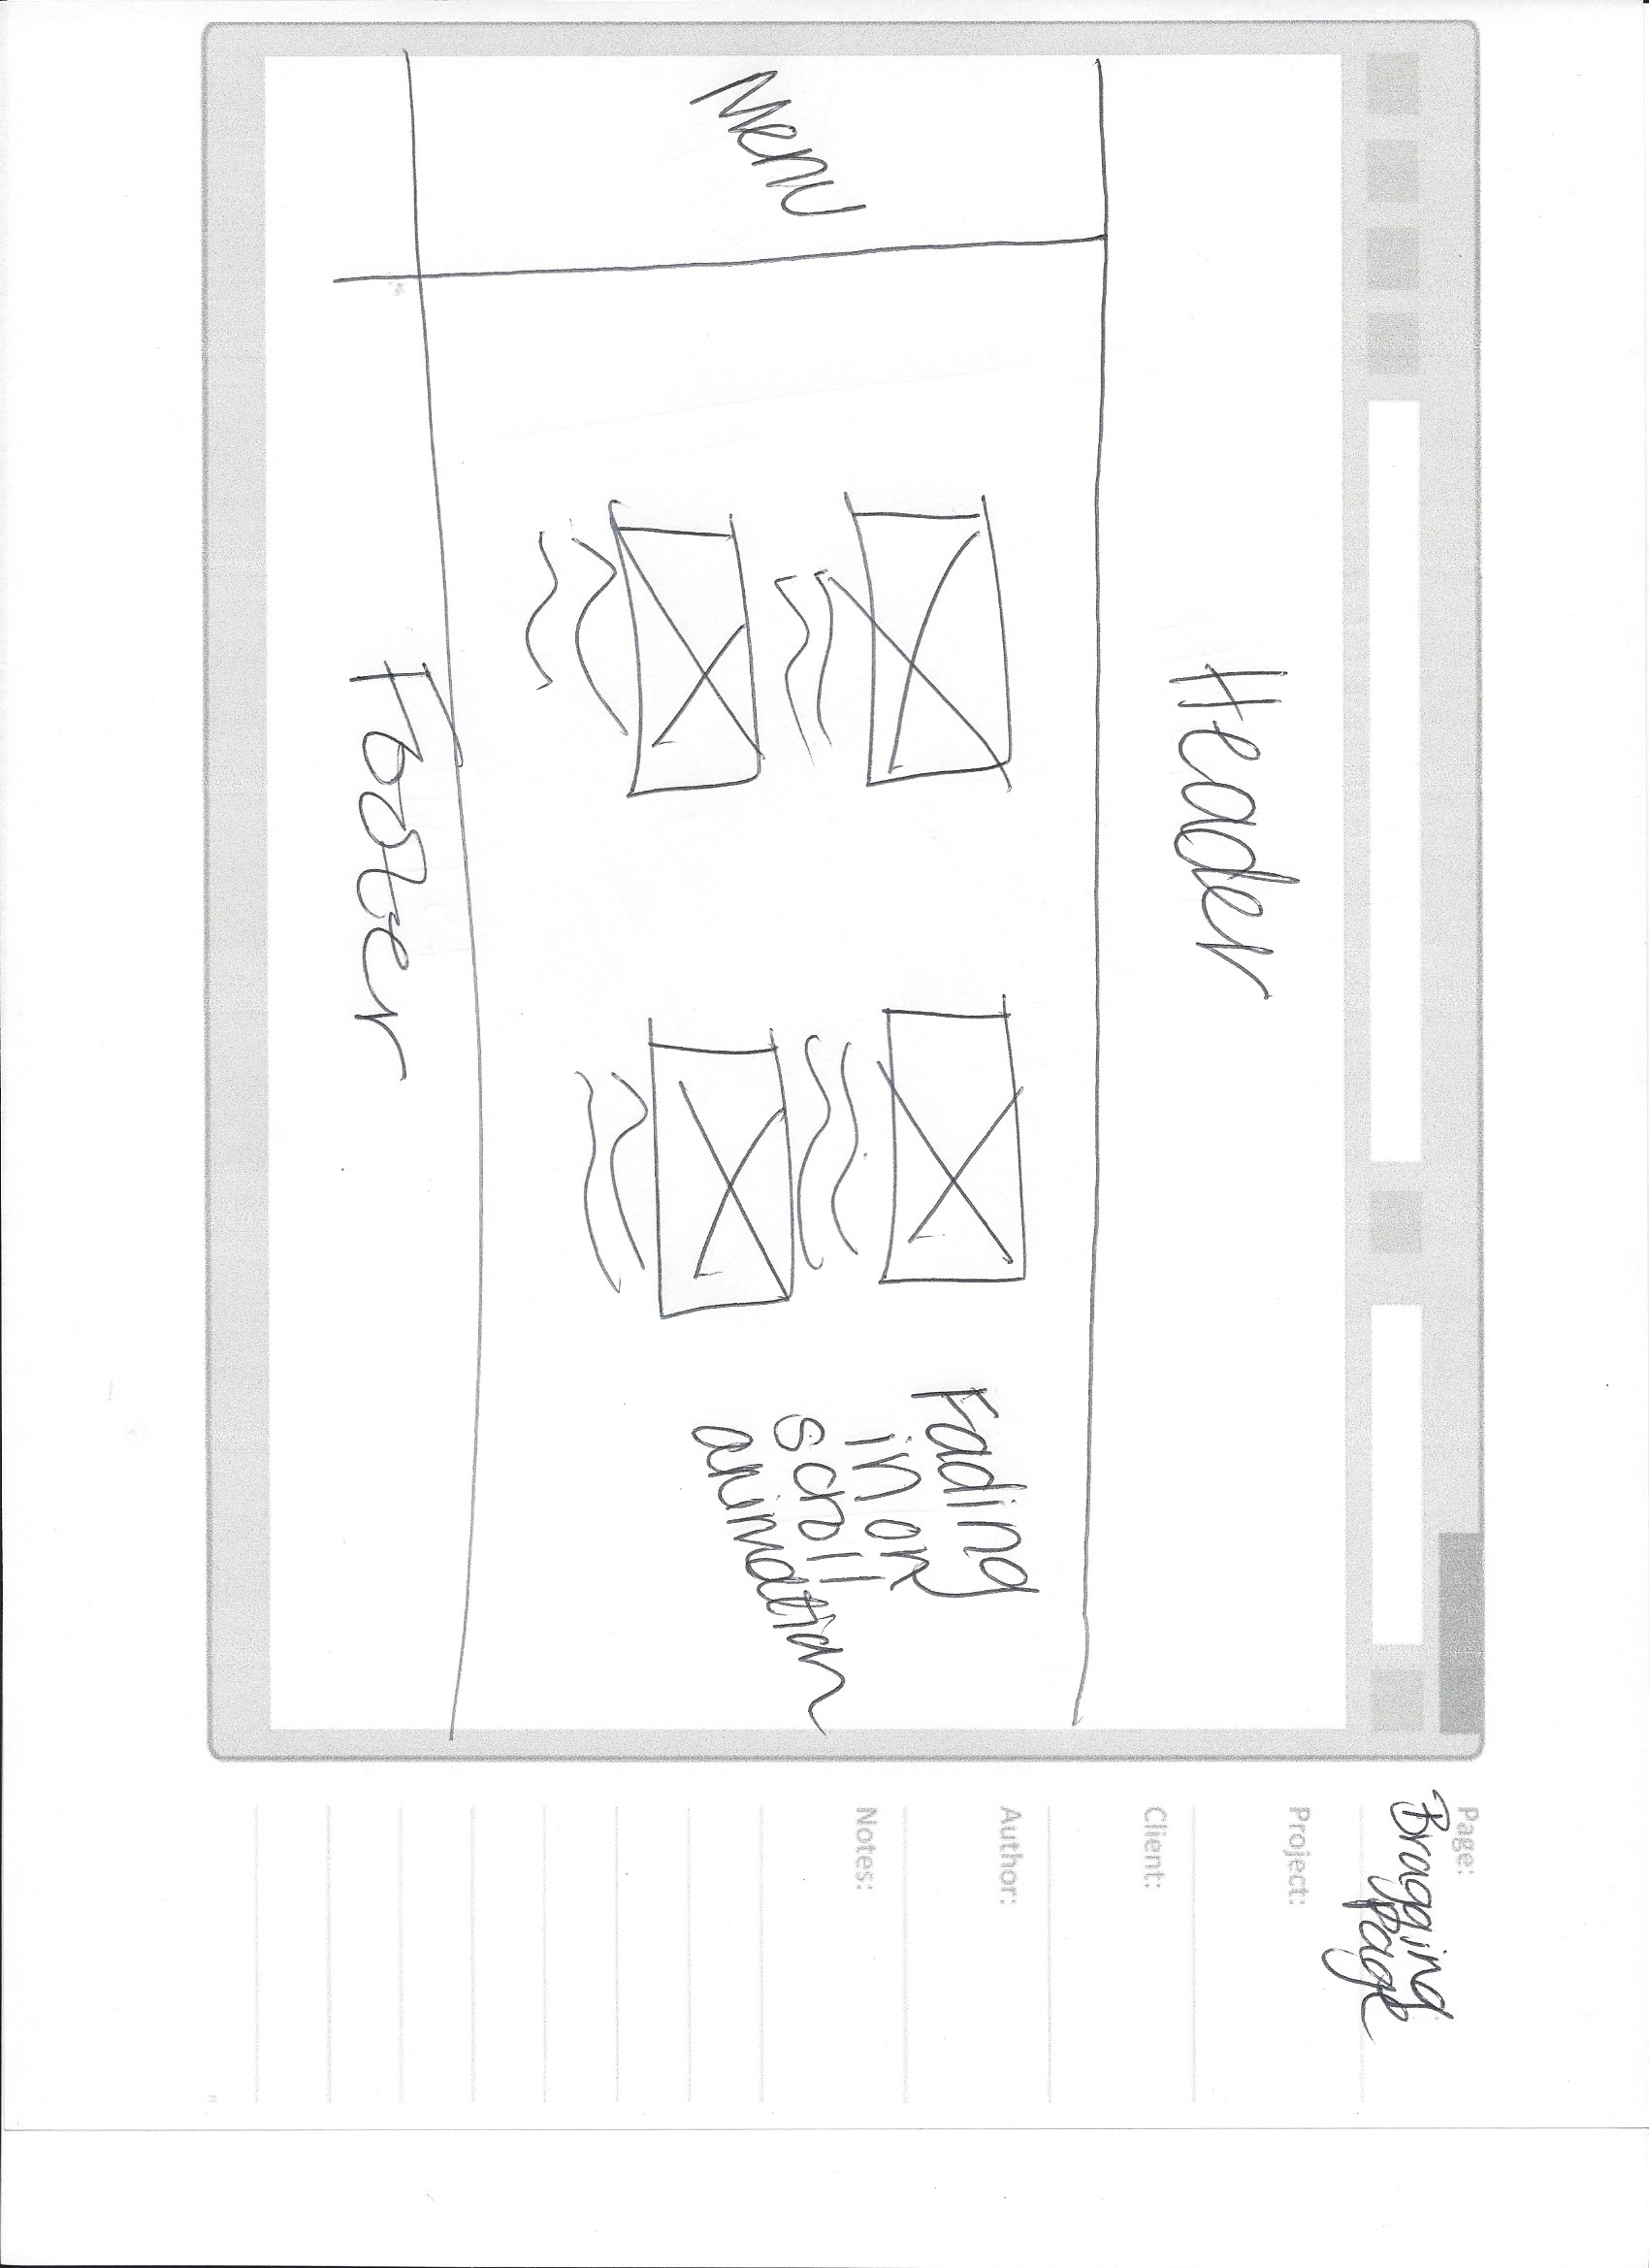 Header
Menu
Fading
in on
scroll
animation
Footer
Page:
Bragging
page
Project:
Client:
Author:
Notes: